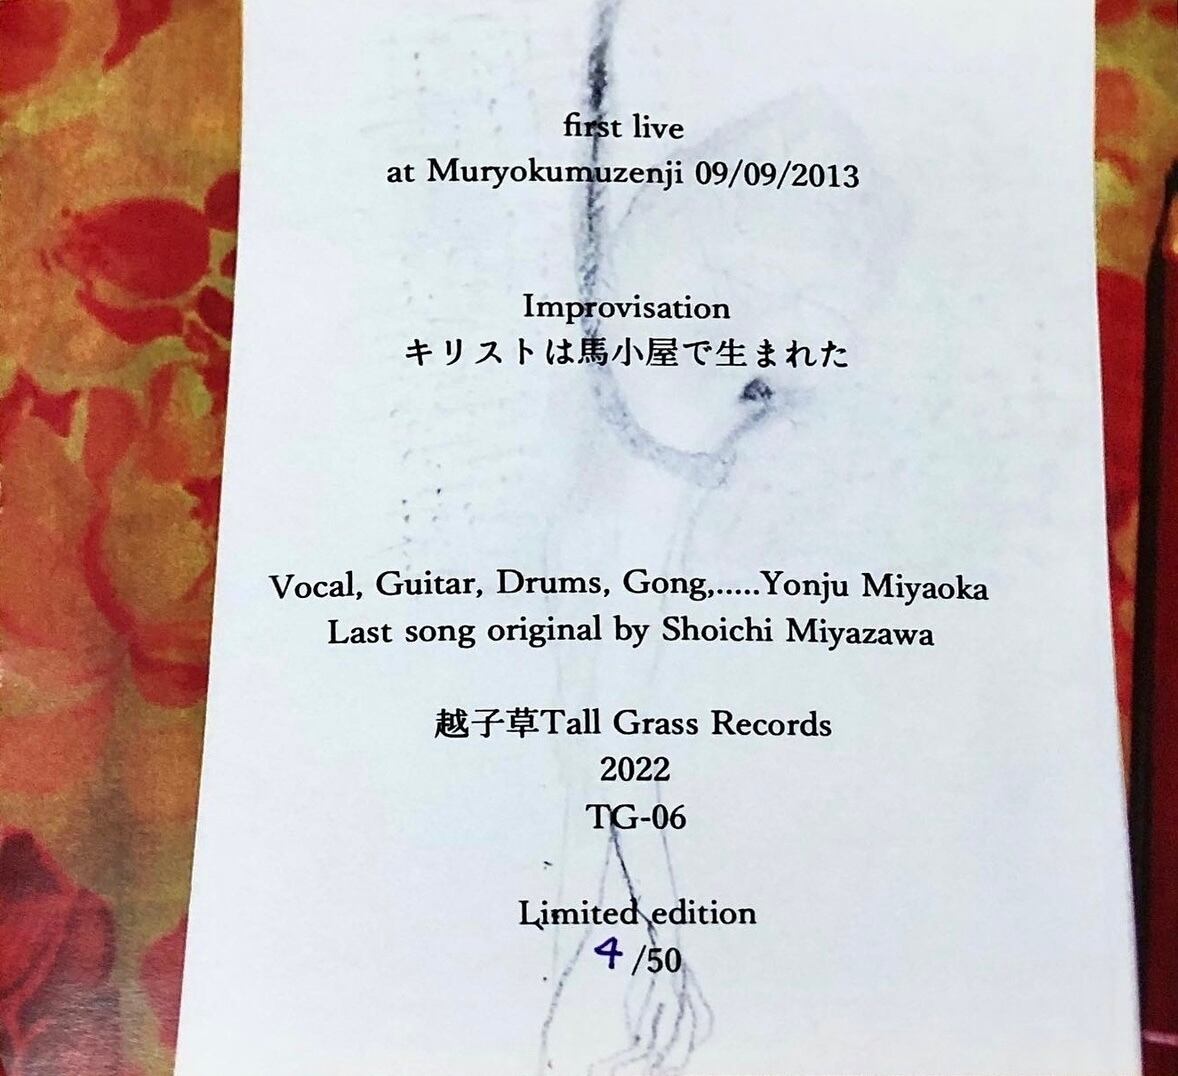 first live
at Muryokumuzenji 09/09/2013
Improvisation
キリストは馬小屋で生まれた
Vocal, Guitar, Drums, Gong,.....Yonju Miyaoka
Last song original by Shoichi Miyazawa
越子草Tall Grass Records
2022
TG-06
Limited edition
4 /50